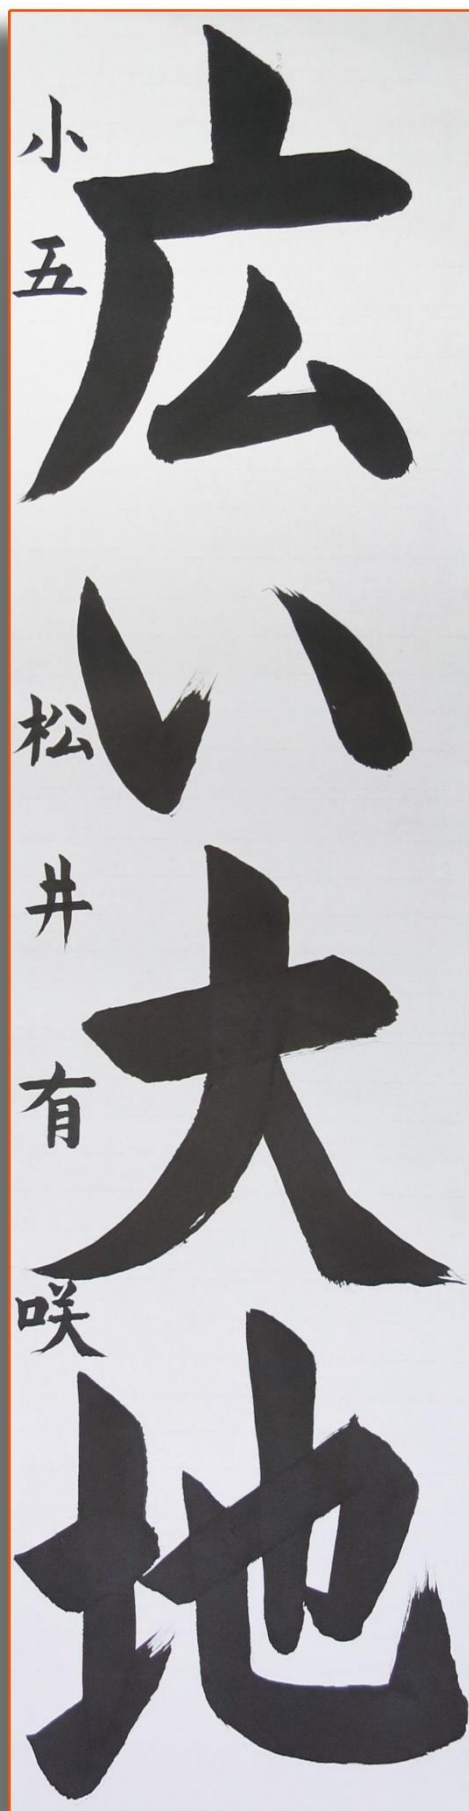 広い大地
小五 松井有咲